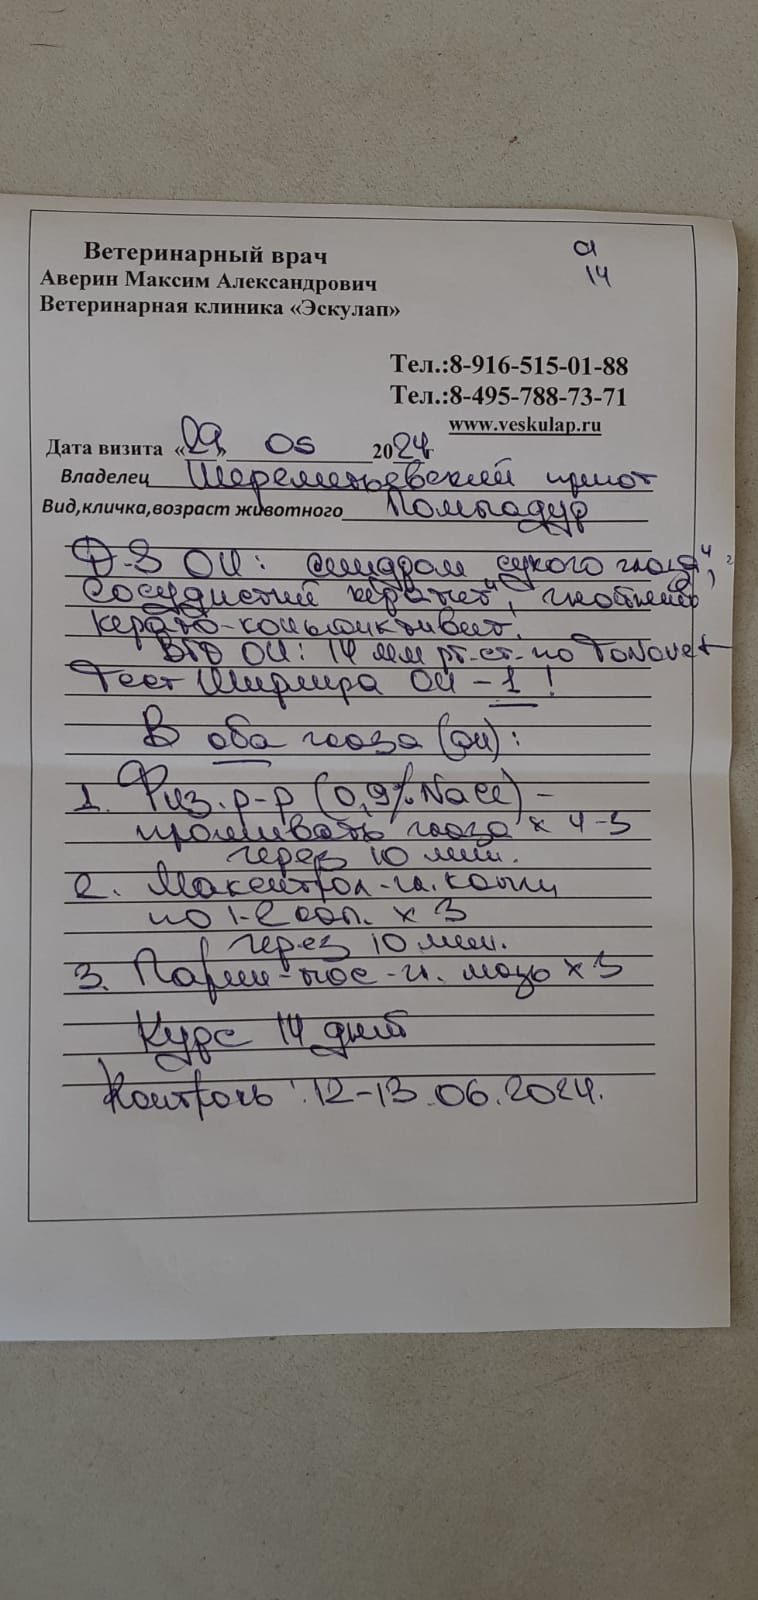 Ветеринарный врач
Аверин Максим Александрович
Ветеринарная клиника «Эскулап»
14
Тел.:8-916-515-01-88
Тел.:8-495-788-73-71
www.veskulap.ru
Дата визита «29» 05 2024г
Владелец Шереметьевский приют
Вид,кличка,возраст животного Помпадур
Д-S OU: синдром "сухого глаза",
сосудистый кератит, гнойный
керато-конъюнктивит.
ВГД OU: 14 мм рт.ст. по TonoVet
Тест Ширмера OU - 1 !
В оба глаза (OU):
1. Физ. р-р (0,9% NaCl) -
промывать глаза х 4-5
через 10 мин.
2. Макситрол-гл. капли
по 1-2 кап. х 3
через 10 мин.
3. - гл. мазь х 3
Курс 14 дней
Контроль 12-13.06.2024.